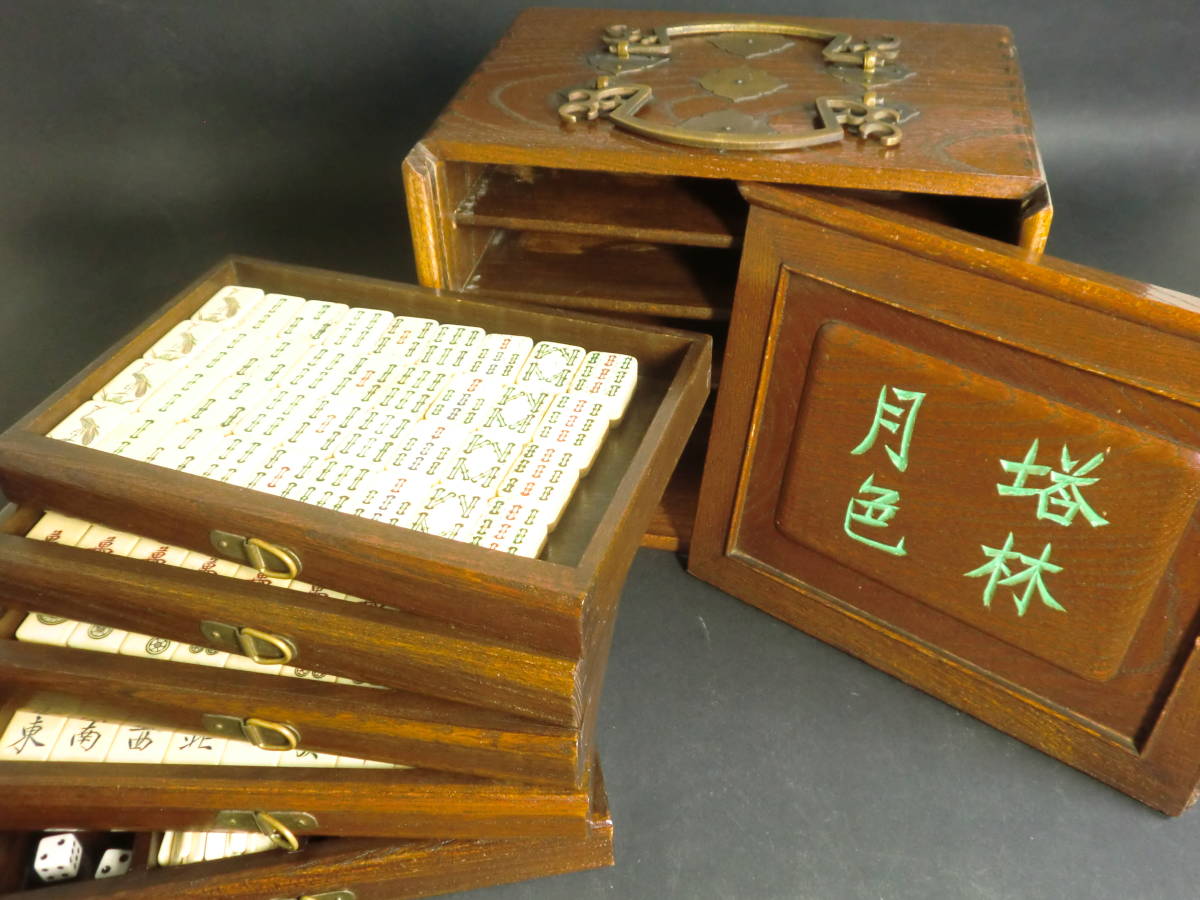 塔林
月色
東 南 西 北